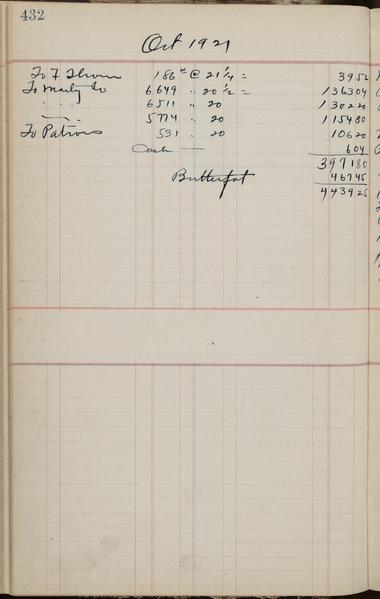 432
Oct 1921
To F 186 # @ 21 1/4 = 3952
To Marty Co 6649 " 20 1/2 = 136304
" " 6511 " 20 130220
" " 5774 " 20 115480
To Patrons 531 " 20 10620
Cash — 604
397180
Butterfat 46745
443925